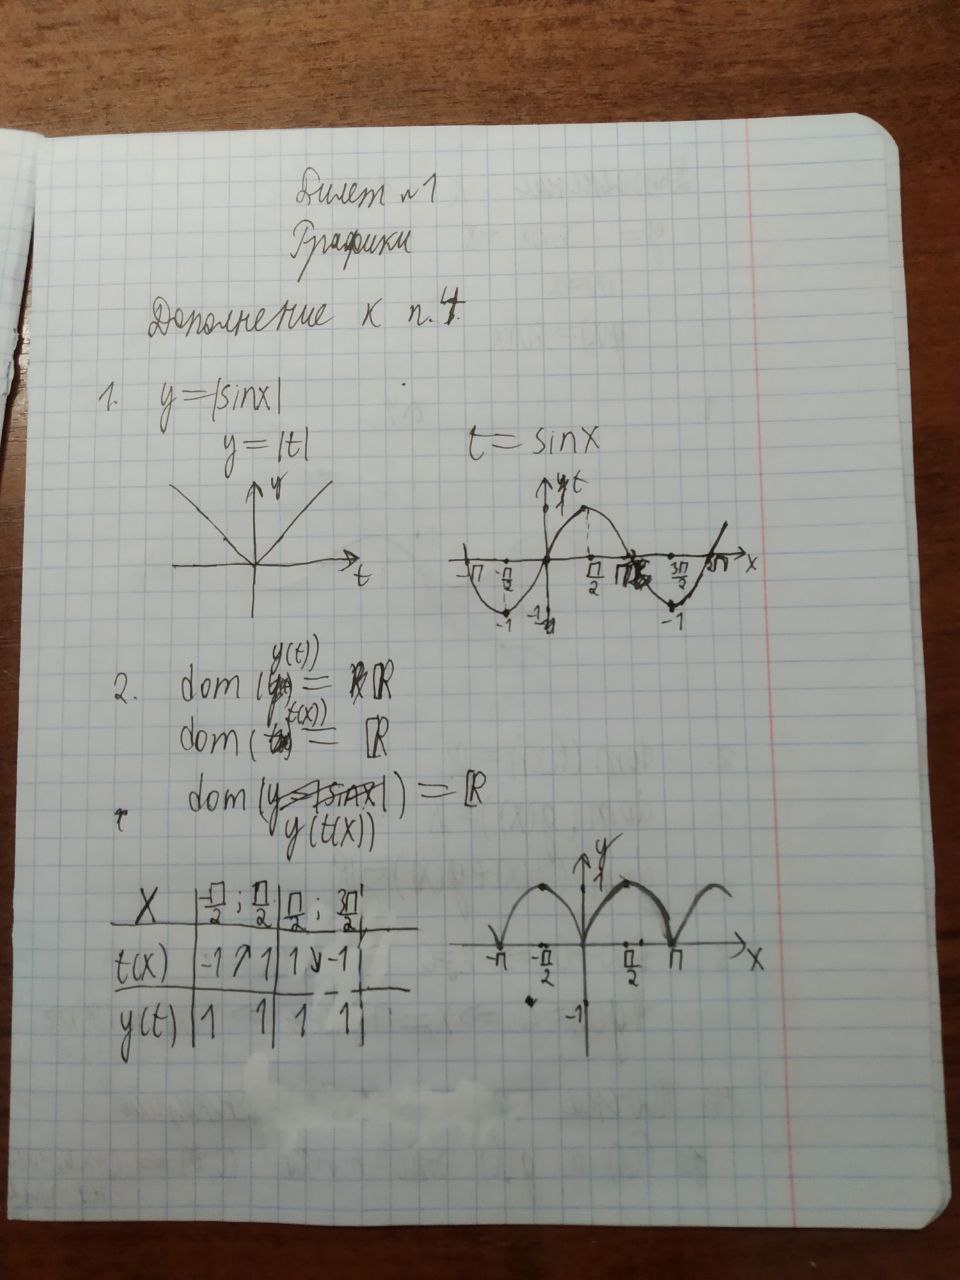 Билет №1
Графики
Дополнение к п.4.
1. y=|sinx|
y=|t| t=sinx
y t
y t 1
-π -π/2 π/2 π 3π/2 2π x
-1 -1 -1
y(t))
2. dom ( = ℝ
t(x))
dom ( = ℝ
dom (y=|sinx|) = ℝ
y(t(x))
x -π/2 ; π/2 π/2 ; 3π/2
t(x) -1↗1 1↘-1
y(t) 1 1 1 1
y 1
-π -π/2 π/2 π x
-1